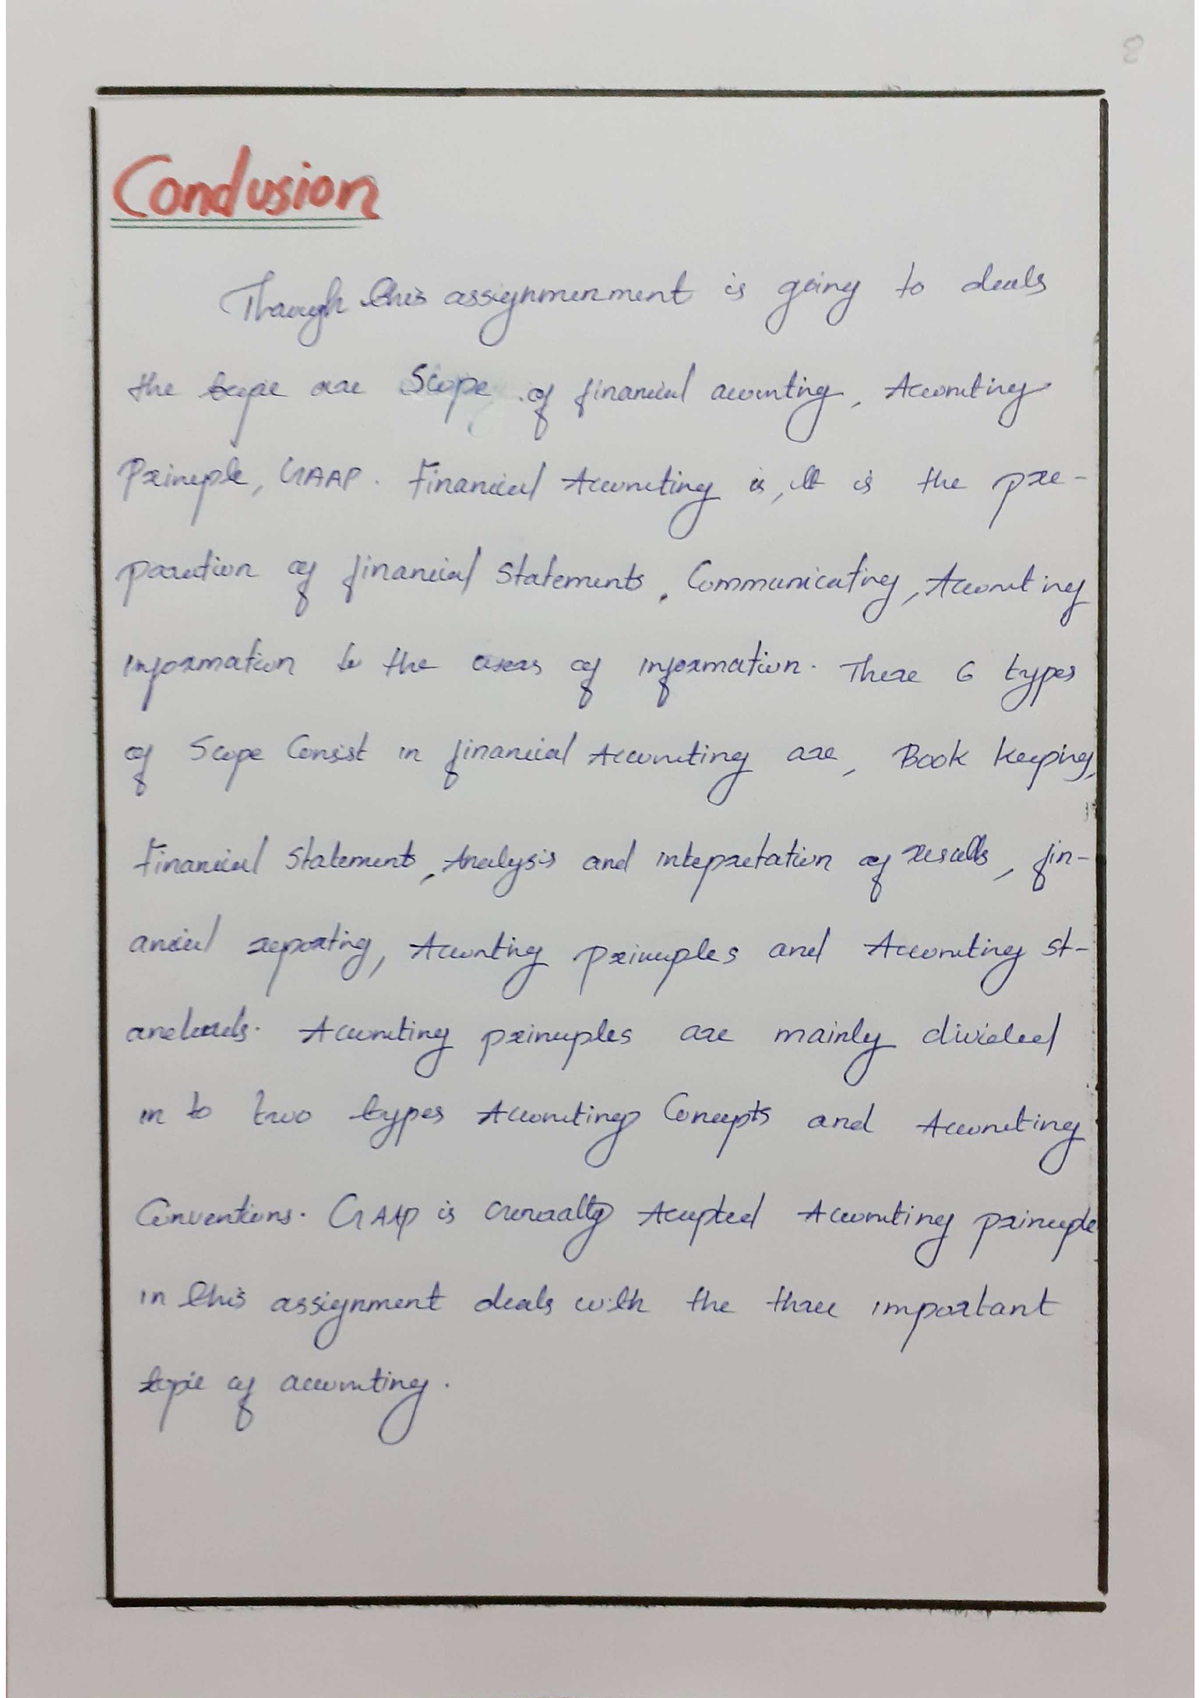 8
Conclusion
Though this assignmenment is going to deals
the topic are Scope of financial accounting, Accounting
Principle, GAAP. Financial Accounting is, It is the pre-
paration of financial Statements, Communicating, Accounting
information to the users of information. There 6 types
of Scope Consist in financial Accounting are, Book keeping,
Financial Statements, Analysis and intepretation of results, fin-
ancial reporting, Accounting principles and Accounting st-
andards. Accounting principles are mainly divided
in to two types Accounting Concepts and Accounting
Conventions. GAAP is Generally Accepted Accounting principle
in this assignment deals with the three important
topic of accounting.